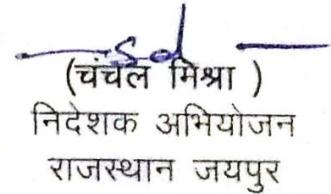 sd
(चंचल मिश्रा )
निदेशक अभियोजन
राजस्थान जयपुर